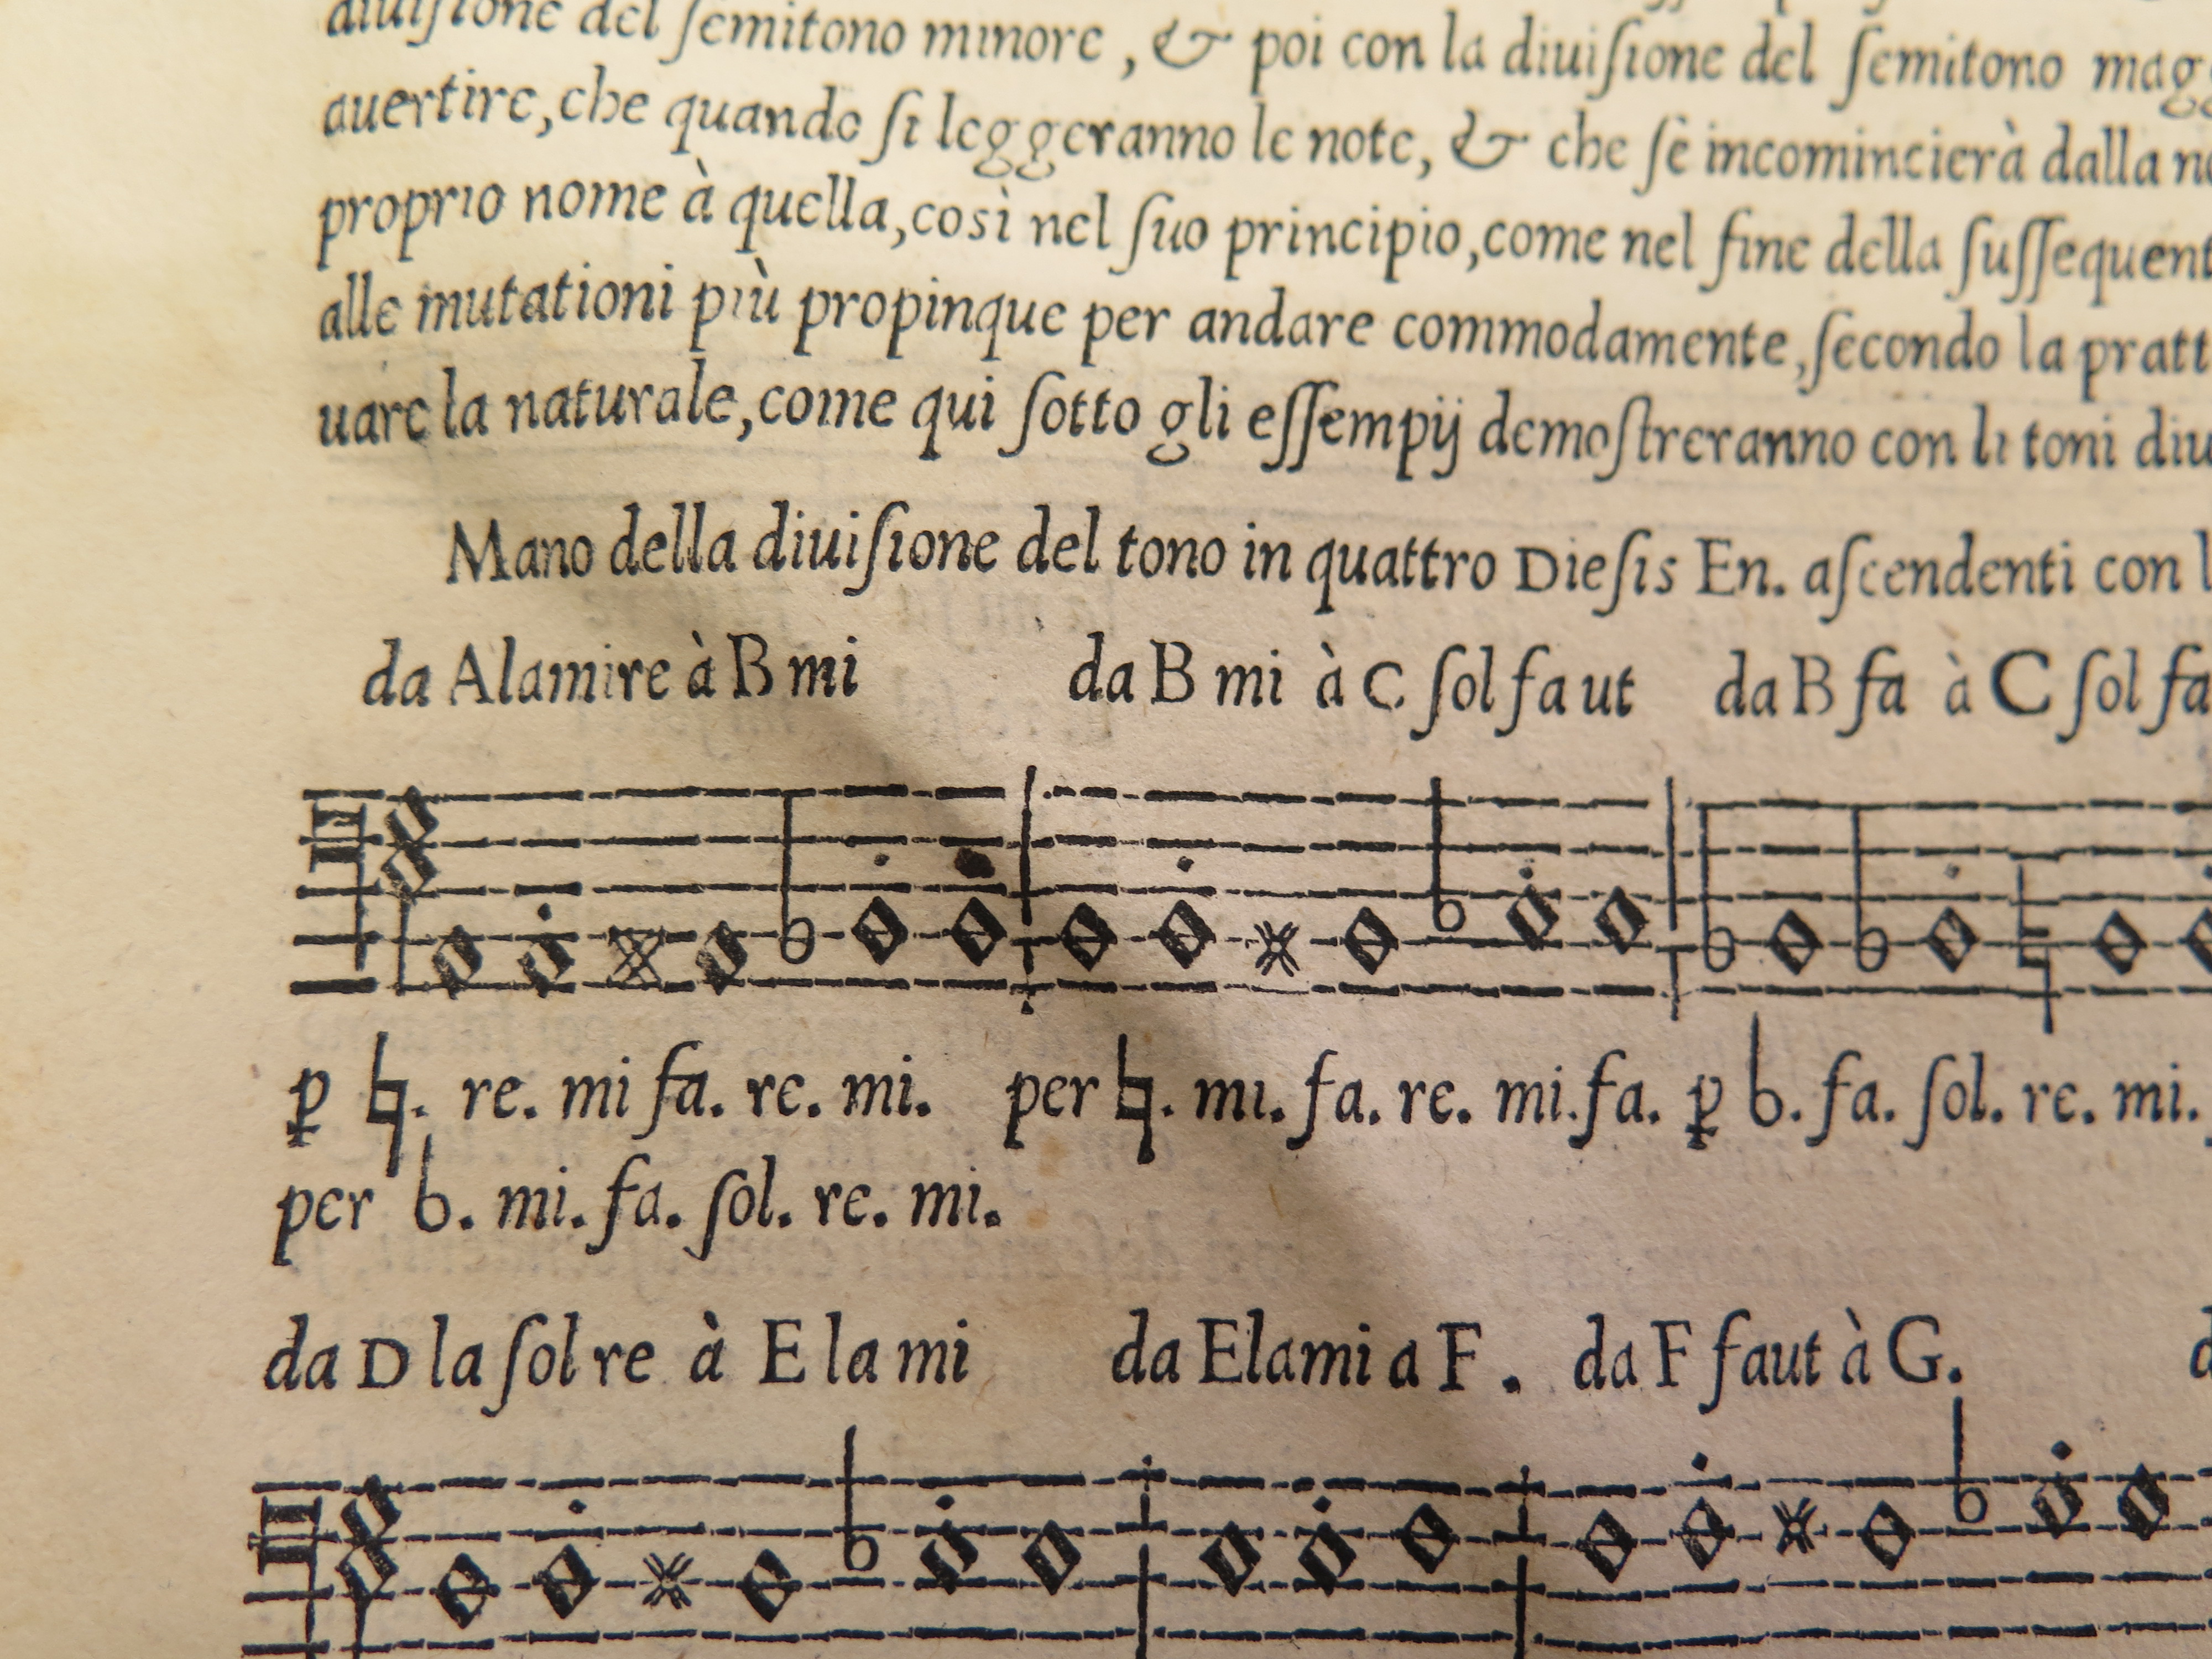 diuiſione del ſemitono minore, & poi con la diuiſione del ſemitono
auertire, che quando ſi leggeranno le note, & che ſe incomincierà dalla
proprio nome à quella, così nel ſuo principio, come nel fine della
alle mutationi più propinque per andare commodamente, ſecondo la
uare la naturale, come qui ſotto gli eſſempij demoſtreranno con li toni
Mano della diuiſione del tono in quattro Dieſis En. aſcendenti con
da Alamire à B mi da B mi à C ſol fa ut da B fa à C ſol fa
ꝑ ♮. re. mi fa. re. mi. per ♮. mi. fa. re. mi. fa. ꝑ b. fa. ſol. re. mi.
per b. mi. fa. ſol. re. mi.
da D la ſol re à E la mi da Elami a F. da F faut à G.